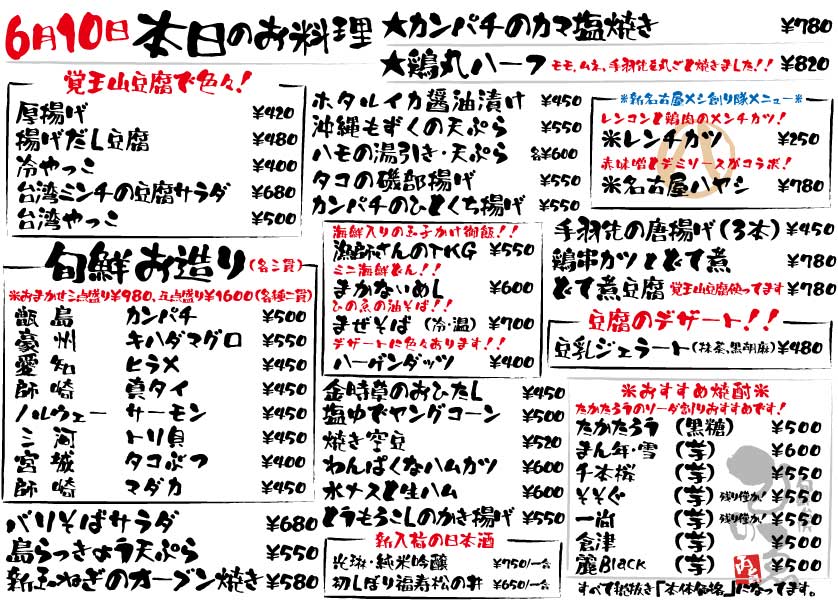 6月10日 本日のお料理
★カンパチのカマ塩焼き ¥780
★鶏丸ハーフ モモ、ムネ、手羽先を丸ごと焼きました!! ¥820
覚王山豆腐で色々!
厚揚げ ¥420
揚げだし豆腐 ¥480
冷やっこ ¥400
台湾ミンチの豆腐サラダ ¥680
台湾やっこ ¥500
旬鮮お造り(各二貫)
※おまかせ三点盛り¥980、五点盛り¥1600(各種二貫)
甑島 カンパチ ¥500
豪州 キハダマグロ ¥550
愛知 ヒラメ ¥450
師崎 真タイ ¥450
ノルウェー サーモン ¥450
三河 トリ貝 ¥450
宮城 タコぶつ ¥400
師崎 マダカ ¥450
バリそばサラダ ¥680
島らっきょう天ぷら ¥550
新玉ねぎのオーブン焼き ¥580
ホタルイカ醤油漬け ¥450
沖縄もずくの天ぷら ¥550
ハモの湯引き・天ぷら 各¥600
タコの磯部揚げ ¥550
カンパチのひとくち揚げ ¥550
海鮮入りの玉子かけ御飯!!
漁師さんのTKG ¥550
ミニ海鮮どん!!
まかないめし ¥600
ひの魚の油そば!!
まぜそば (冷・温) ¥700
デザートに色々あります!!
ハーゲンダッツ ¥400
金時草のおひたし ¥450
塩ゆでヤングコーン ¥500
焼き空豆 ¥520
わんぱくなハムカツ ¥600
水ナスと生ハム ¥600
とうもろこしのかき揚げ ¥550
新入荷の日本酒
光琳・純米吟醸 ¥750/一合
初しぼり福寿松の井 ¥650/一合
※新名古屋メシ創り隊メニュー※
レンコンと鶏肉のメンチカツ!
※レンチカツ ¥250
赤味噌とデミソースがコラボ!
※名古屋ハヤシ ¥780
手羽先の唐揚げ(3本) ¥450
鶏串カツとどて煮 ¥780
どて煮豆腐 覚王山豆腐使ってます ¥780
豆腐のデザート!!
豆乳ジェラート(抹茶、黒胡麻) ¥480
※おすすめ焼酎※
たかたろうのソーダ割りおすすめです!
たかたろう (黒糖) ¥500
まん年・雪 (芋) ¥600
千本桜 (芋) ¥550
そそぐ (芋) 残り僅か! ¥550
一尚 (芋) 残り僅か! ¥550
倉津 (芋) ¥500
麗Black (芋) ¥500
すべて税抜き「本体価格」になってます。